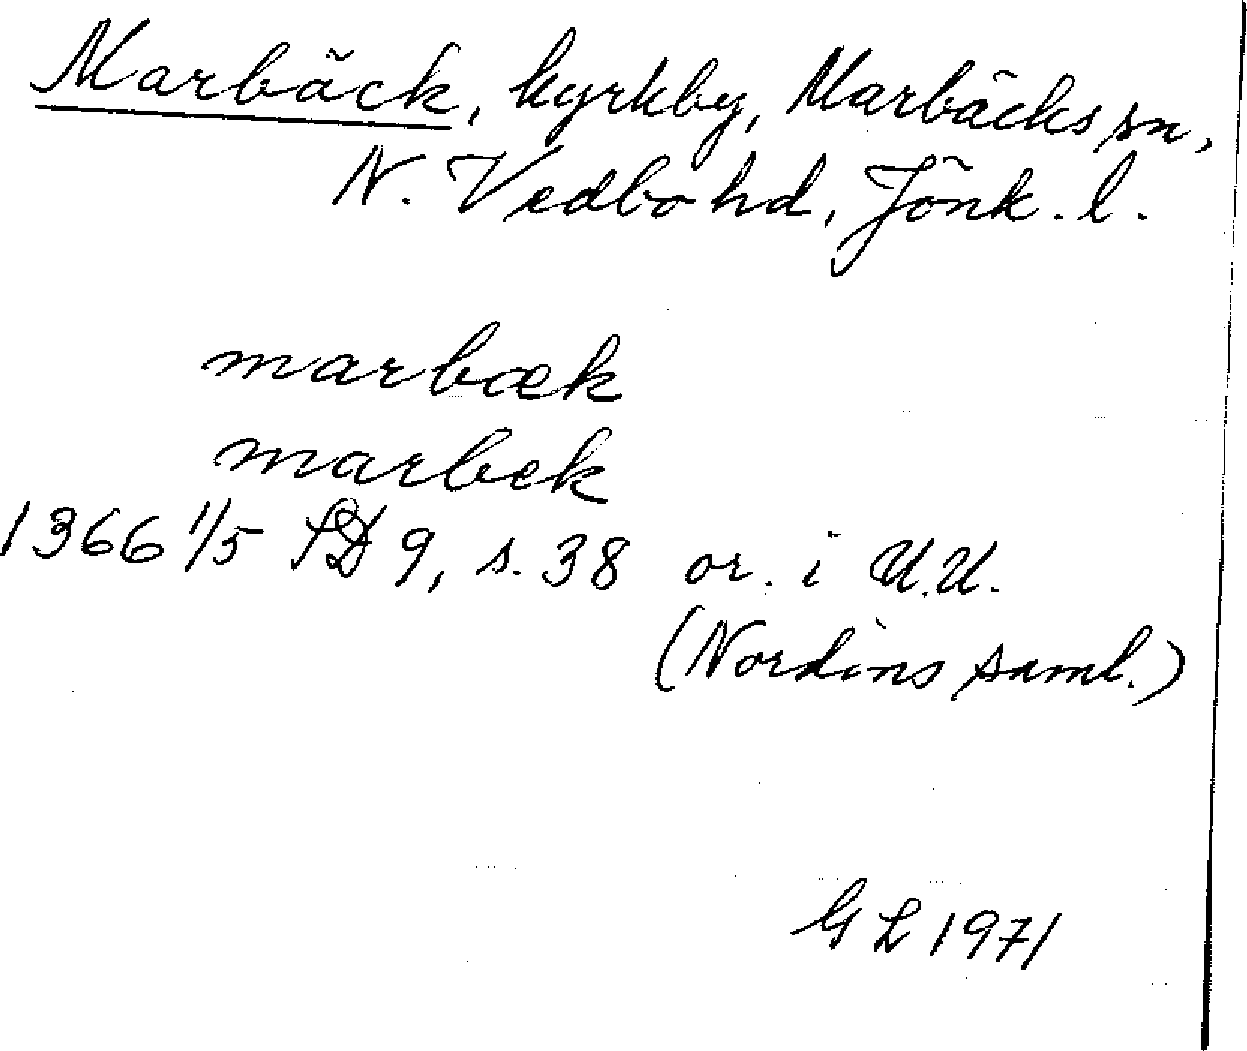 Marbäck, kyrkby, Marbäcks sn,
N. Vedbo hd, Jönk. l.
marbæk
marbek
1366 1/5 SD 9, s. 38 or. i U.U.
(Nordins saml.)
GL 1971